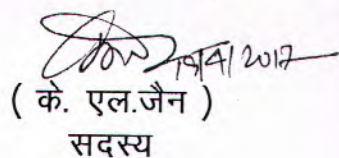 19/4/2017
( के. एल.जैन )
सदस्य